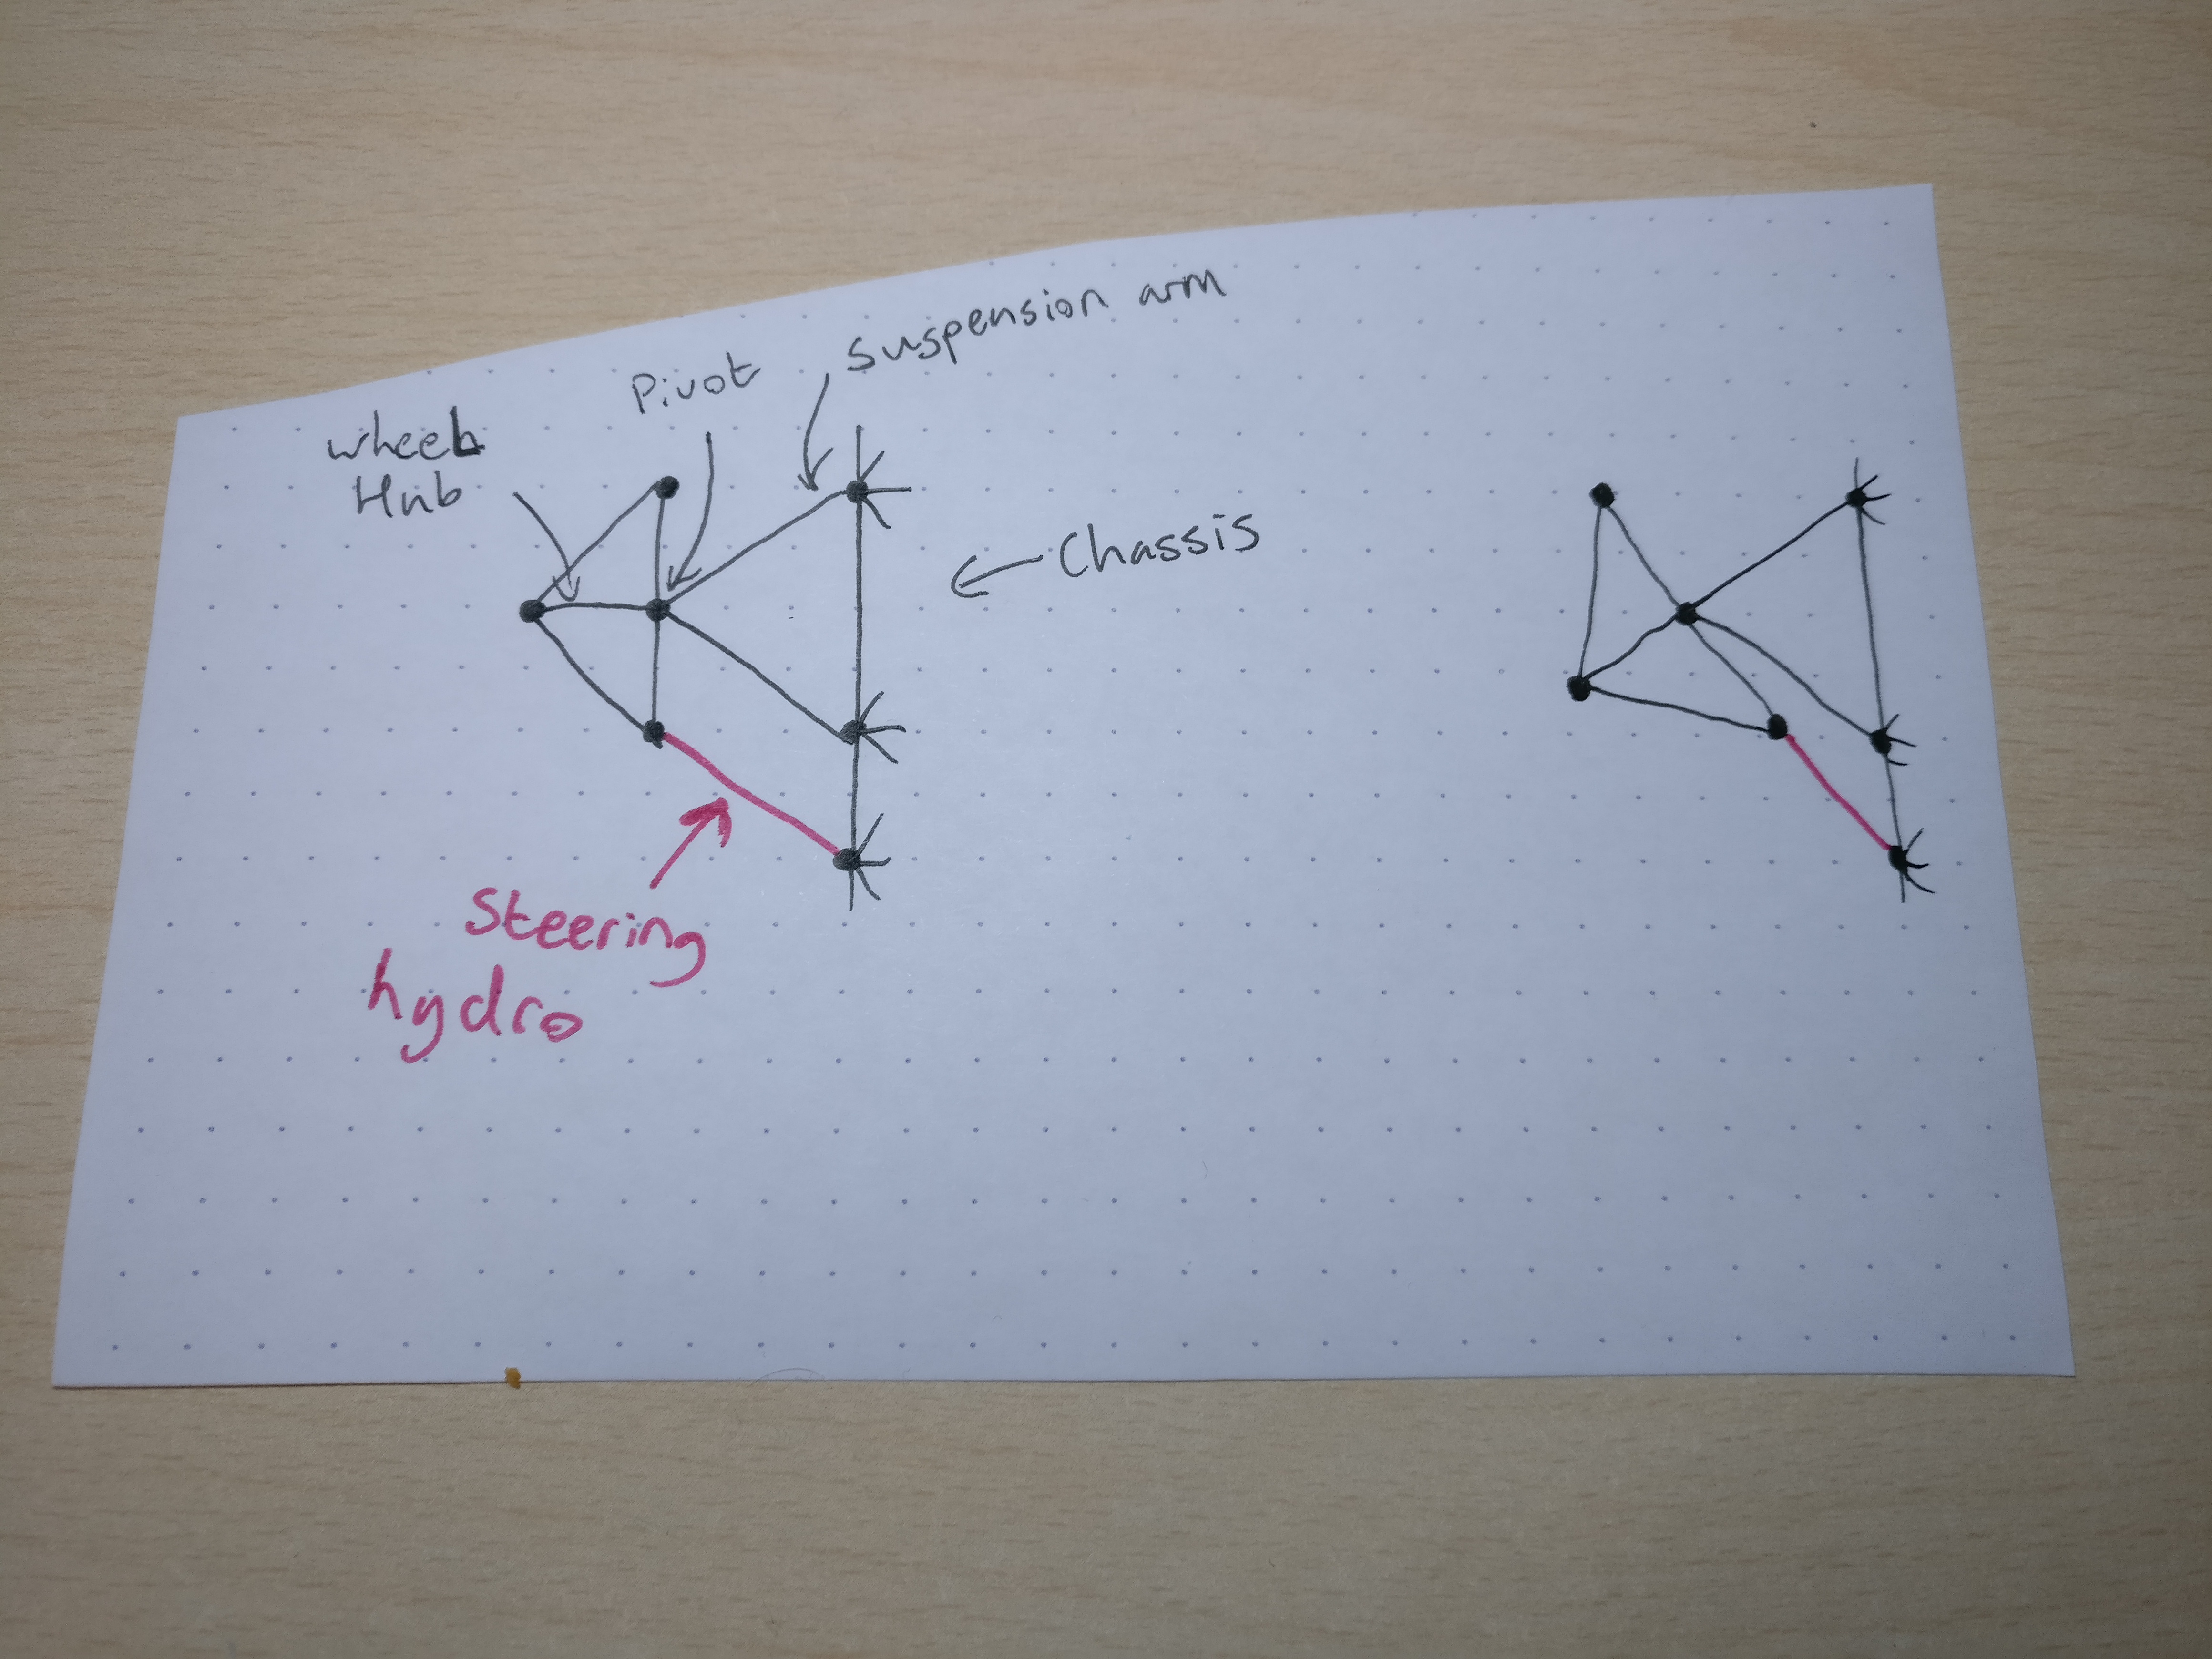 suspension arm
Pivot
wheel
Hub
Chassis
Steering
hydro